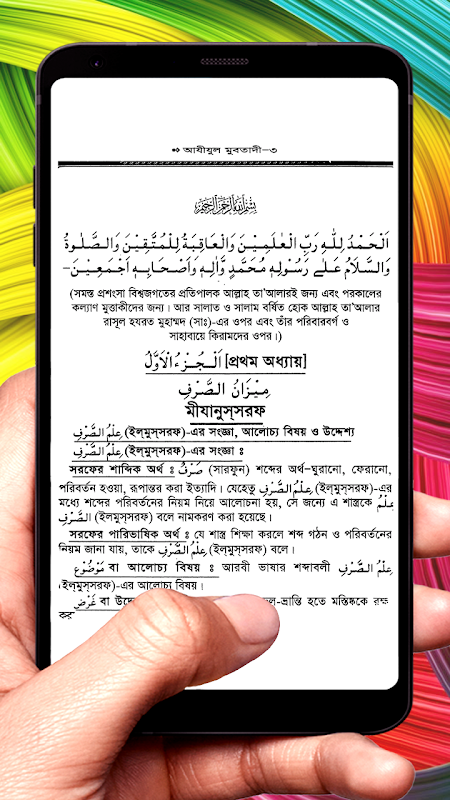 ➺ আযীযুল মুবতাদী–৩
بِسْمِ اللهِ الرَّحْمٰنِ الرَّحِيْمِ
اَلْحَمْدُ لِلّٰهِ رَبِّ الْعٰلَمِيْنَ وَالْعَاقِبَةُ لِلْمُتَّقِيْنَ وَالصَّلٰوةُ
وَالسَّلَامُ عَلٰى رَسُوْلِهٖ مُحَمَّدٍ وَّاٰلِهٖ وَاَصْحَابِهٖ اَجْمَعِيْنَ–
(সমস্ত প্রশংসা বিশ্বজগতের প্রতিপালক আল্লাহ তা'আলারই জন্য এবং পরকালের
কল্যাণ মুত্তাকীদের জন্য। আর সালাত ও সালাম বর্ষিত হোক আল্লাহ তা'আলার
রাসূল হযরত মুহাম্মদ (সাঃ)-এর ওপর এবং তাঁর পরিবারবর্গ ও
সাহাবায়ে কিরামদের ওপর।)
اَلْجُزْءُ الْاَوَّلُ [প্রথম অধ্যায়]
مِيْزَانُ الصَّرْفِ
মীযানুস্‌সরফ
عِلْمُ الصَّرْفِ (ইল্‌মুস্‌সরফ)-এর সংজ্ঞা, আলোচ্য বিষয় ও উদ্দেশ্য
عِلْمُ الصَّرْفِ (ইল্‌মুস্‌সরফ)-এর সংজ্ঞা ঃ
সরফের শাব্দিক অর্থ ঃ صَرْفٌ (সারফুন) শব্দের অর্থ–ঘুরানো, ফেরানো,
পরিবর্তন হওয়া, রূপান্তর করা ইত্যাদি। যেহেতু عِلْمُ الصَّرْفِ (ইল্‌মুস্‌সরফ)-এর
মধ্যে শব্দের পরিবর্তনের নিয়ম নিয়ে আলোচনা হয়, সে জন্যে এ শাস্ত্রকে عِلْمُ
الصَّرْفِ (ইল্‌মুস্‌সরফ) বলে নামকরণ করা হয়েছে।
সরফের পারিভাষিক অর্থ ঃ যে শাস্ত্র শিক্ষা করলে শব্দ গঠন ও পরিবর্তনের
নিয়ম জানা যায়, তাকে عِلْمُ الصَّرْفِ (ইল্‌মুস্‌সরফ) বলে।
مَوْضُوْعٌ বা আলোচ্য বিষয় ঃ আরবী ভাষার শব্দাবলী عِلْمُ الصَّرْفِ
(ইল্‌মুস্‌সরফ)-এর আলোচ্য বিষয়।
غَرْضٌ বা ভ্রান্তি হতে মস্তিষ্ককে